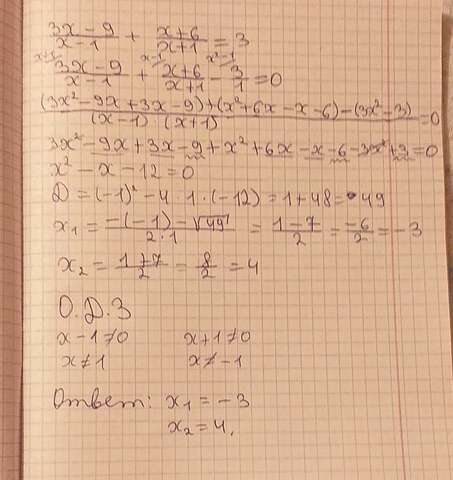 3x-9/x-1 + x+6/x+1 = 3
x+1 3x-9/x-1 + x-1 x+6/x+1 - x²-1 3/1 = 0
(3x²-9x+3x-9)+(x²+6x-x-6)-(3x²-3)/(x-1)(x+1) = 0
3x²-9x+3x-9+x²+6x-x-6-3x²+3=0
x²-x-12=0
D=(-1)²-4·1·(-12)=1+48=49
x₁ = -(-1)-√49/2·1 = 1-7/2 = -6/2 = -3
x₂ = 1+7/2 = 8/2 = 4
О.Д.З
x-1≠0 x+1≠0
x≠1 x≠-1
Ответ: x₁=-3
x₂=4.